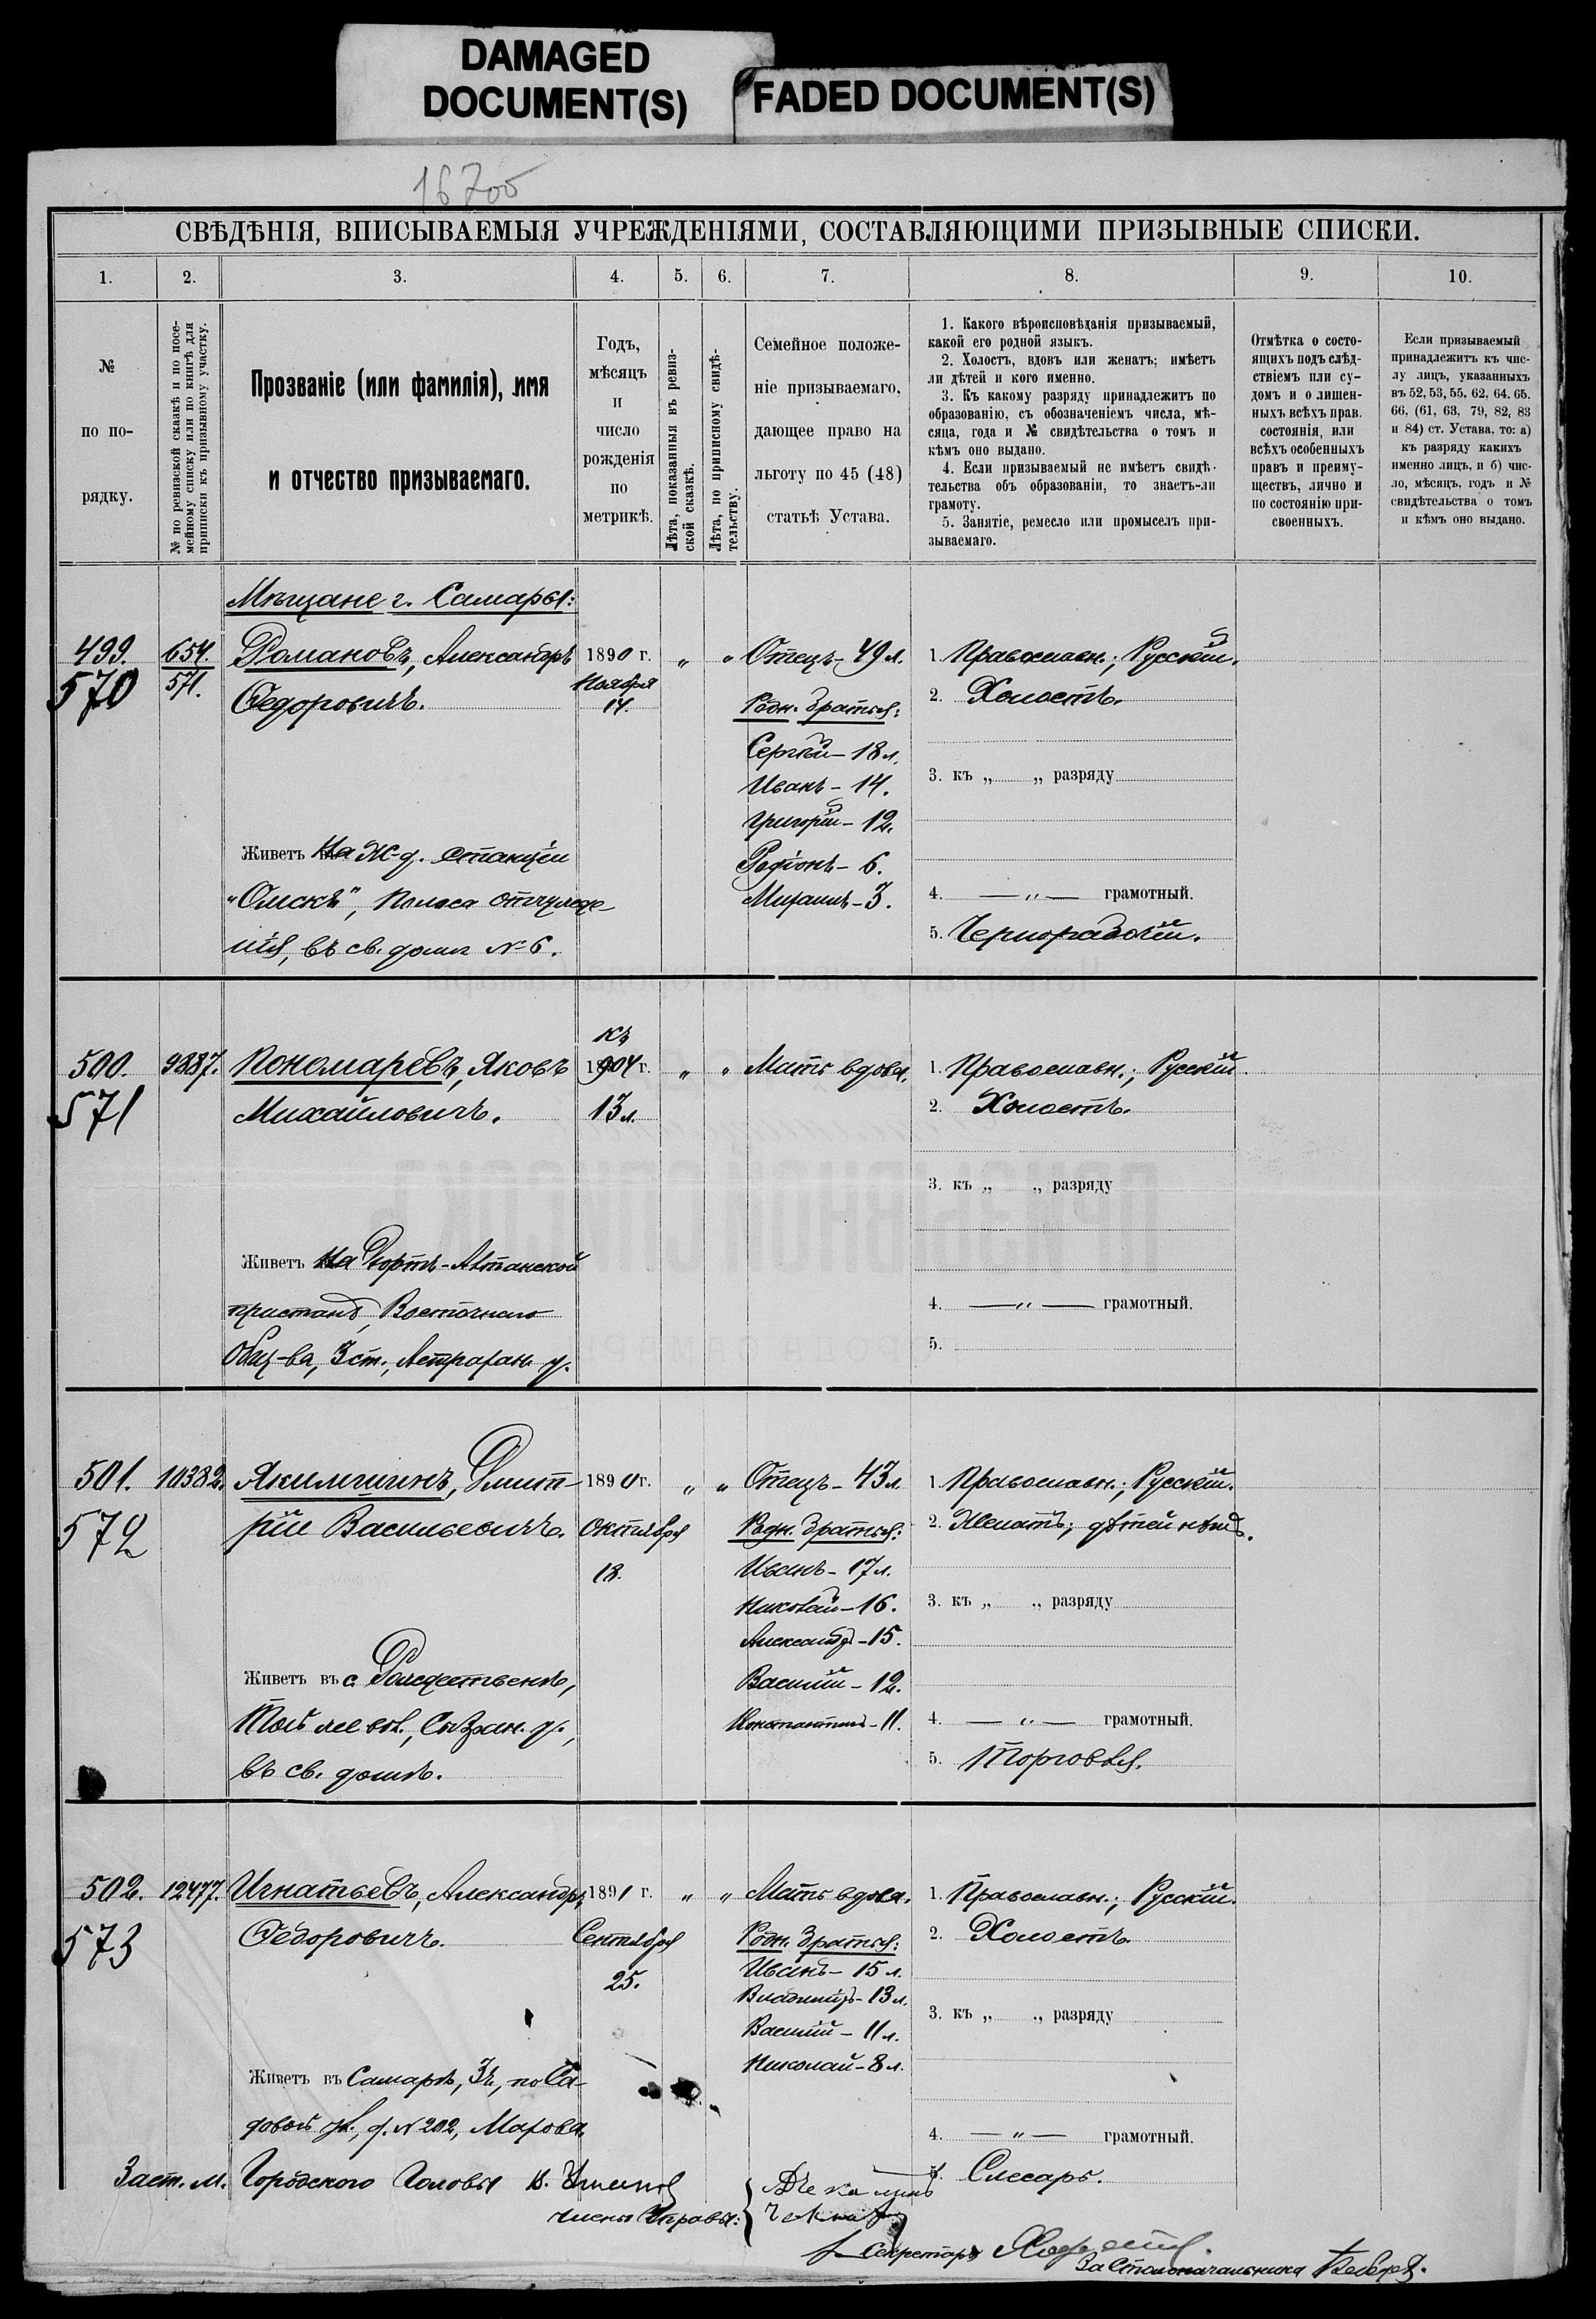 DAMAGED
DOCUMENT(S)
FADED DOCUMENT(S)
16700
СВѢДѢНІЯ, ВПИСЫВАЕМЫЯ УЧРЕЖДЕНІЯМИ, СОСТАВЛЯЮЩИМИ ПРИЗЫВНЫЕ СПИСКИ.
1. 2. 3. 4. 5. 6. 7. 8. 9. 10.
№
по по-
рядку.
№ по ревизской сказкѣ и по посе-
мейному списку или по книгѣ для
приписки къ призывному участку.
Прозваніе (или фамилія), имя
и отчество призываемаго.
Годъ,
мѣсяцъ
и
число
рожденія
по
метрикѣ.
Лѣта, показанныя въ ревиз-
ской сказкѣ.
Лѣта, по приписному свидѣ-
тельству.
Семейное положе-
ніе призываемаго,
дающее право на
льготу по 45 (48)
статьѣ Устава.
1. Какого вѣроисповѣданія призываемый,
какой его родной языкъ.
2. Холостъ, вдовъ или женатъ; имѣетъ
ли дѣтей и кого именно.
3. Къ какому разряду принадлежитъ по
образованію, съ обозначеніемъ числа, мѣ-
сяца, года и № свидѣтельства о томъ и
кѣмъ оно выдано.
4. Если призываемый не имѣетъ свидѣ-
тельства объ образованіи, то знаетъ-ли
грамоту.
5. Занятіе, ремесло или промыселъ при-
зываемаго.
Отмѣтка о состо-
ящихъ подъ слѣд-
ствіемъ или су-
домъ и о лишен-
ныхъ всѣхъ прав.
состоянія, или
всѣхъ особенныхъ
правъ и преиму-
ществъ, лично и
по состоянію при-
своенныхъ.
Если призываемый
принадлежитъ къ чис-
лу лицъ, указанныхъ
въ 52, 53, 55, 62, 64, 65,
66, (61, 63, 79, 82, 83
и 84) ст. Устава, то: а)
къ разряду какихъ
именно лицъ, и б) чис-
ло, мѣсяцъ, годъ и №
свидѣтельства о томъ
и кѣмъ оно выдано.
Мѣщане г. Самары:
499. 654. Романовъ, Александръ 1890 г. „ „ Отецъ - 49 л. 1. Православн.; Русскій.
570 571. Федоровичъ. Ноября 14. Родн. братья: 2. Холостъ.
Сергѣй - 18 л.
Иванъ - 14. 3. къ „ „ разряду
Григорій - 12.
Живетъ на Ж-д. станціи Родіонъ - 6.
"Омскъ", полоса отчужде- Михаилъ - 3. 4. — „ — грамотный.
нія, въ св. домѣ № 6. 5. Чернорабочій.
къ
500. 9887. Пономаревъ, Яковъ 1904 г. „ „ Мать вдова. 1. Православн.; Русскій
571 Михайловичъ. 13 л. 2. Холостъ.
3. къ „ „ разряду
Живетъ на Фортъ-
пристани, Восточнаго 4. — „ — грамотный.
Общ-ва, 3 ст., Астрахан. у. 5.
501. 10382. Якимшинъ, Дмит- 1890 г. „ „ Отецъ - 43 л. 1. Православн.; Русскій.
572 рій Васильевичъ. Октября 18. Родн. братья: 2. Женатъ; дѣтей нѣтъ.
Иванъ - 17 л.
Николай - 16. 3. къ „ „ разряду
Александръ - 15.
Живетъ въ с. Рождественѣ, Василій - 12.
Той же вол., Сызран. у., Константинъ - 11. 4. — „ — грамотный.
въ св. домѣ. 5. Торговля.
502. 12477. Игнатьевъ, Александръ 1891 г. „ „ Мать вдова. 1. Православн.; Русскій.
573 Федоровичъ. Сентября 25. Родн. братья: 2. Холостъ.
Иванъ - 15 л.
Владиміръ - 13 л.
Василій - 11 л. 3. къ „ „ разряду
Живетъ въ Самарѣ, 3 ч., по Са- Николай - 8 л.
довой ул., д. № 202, Марова. 4. — „ — грамотный.
5. Слесарь.
Заст. м. Городского Головы
Члены Управы:
Секретарь
За Столоначальника